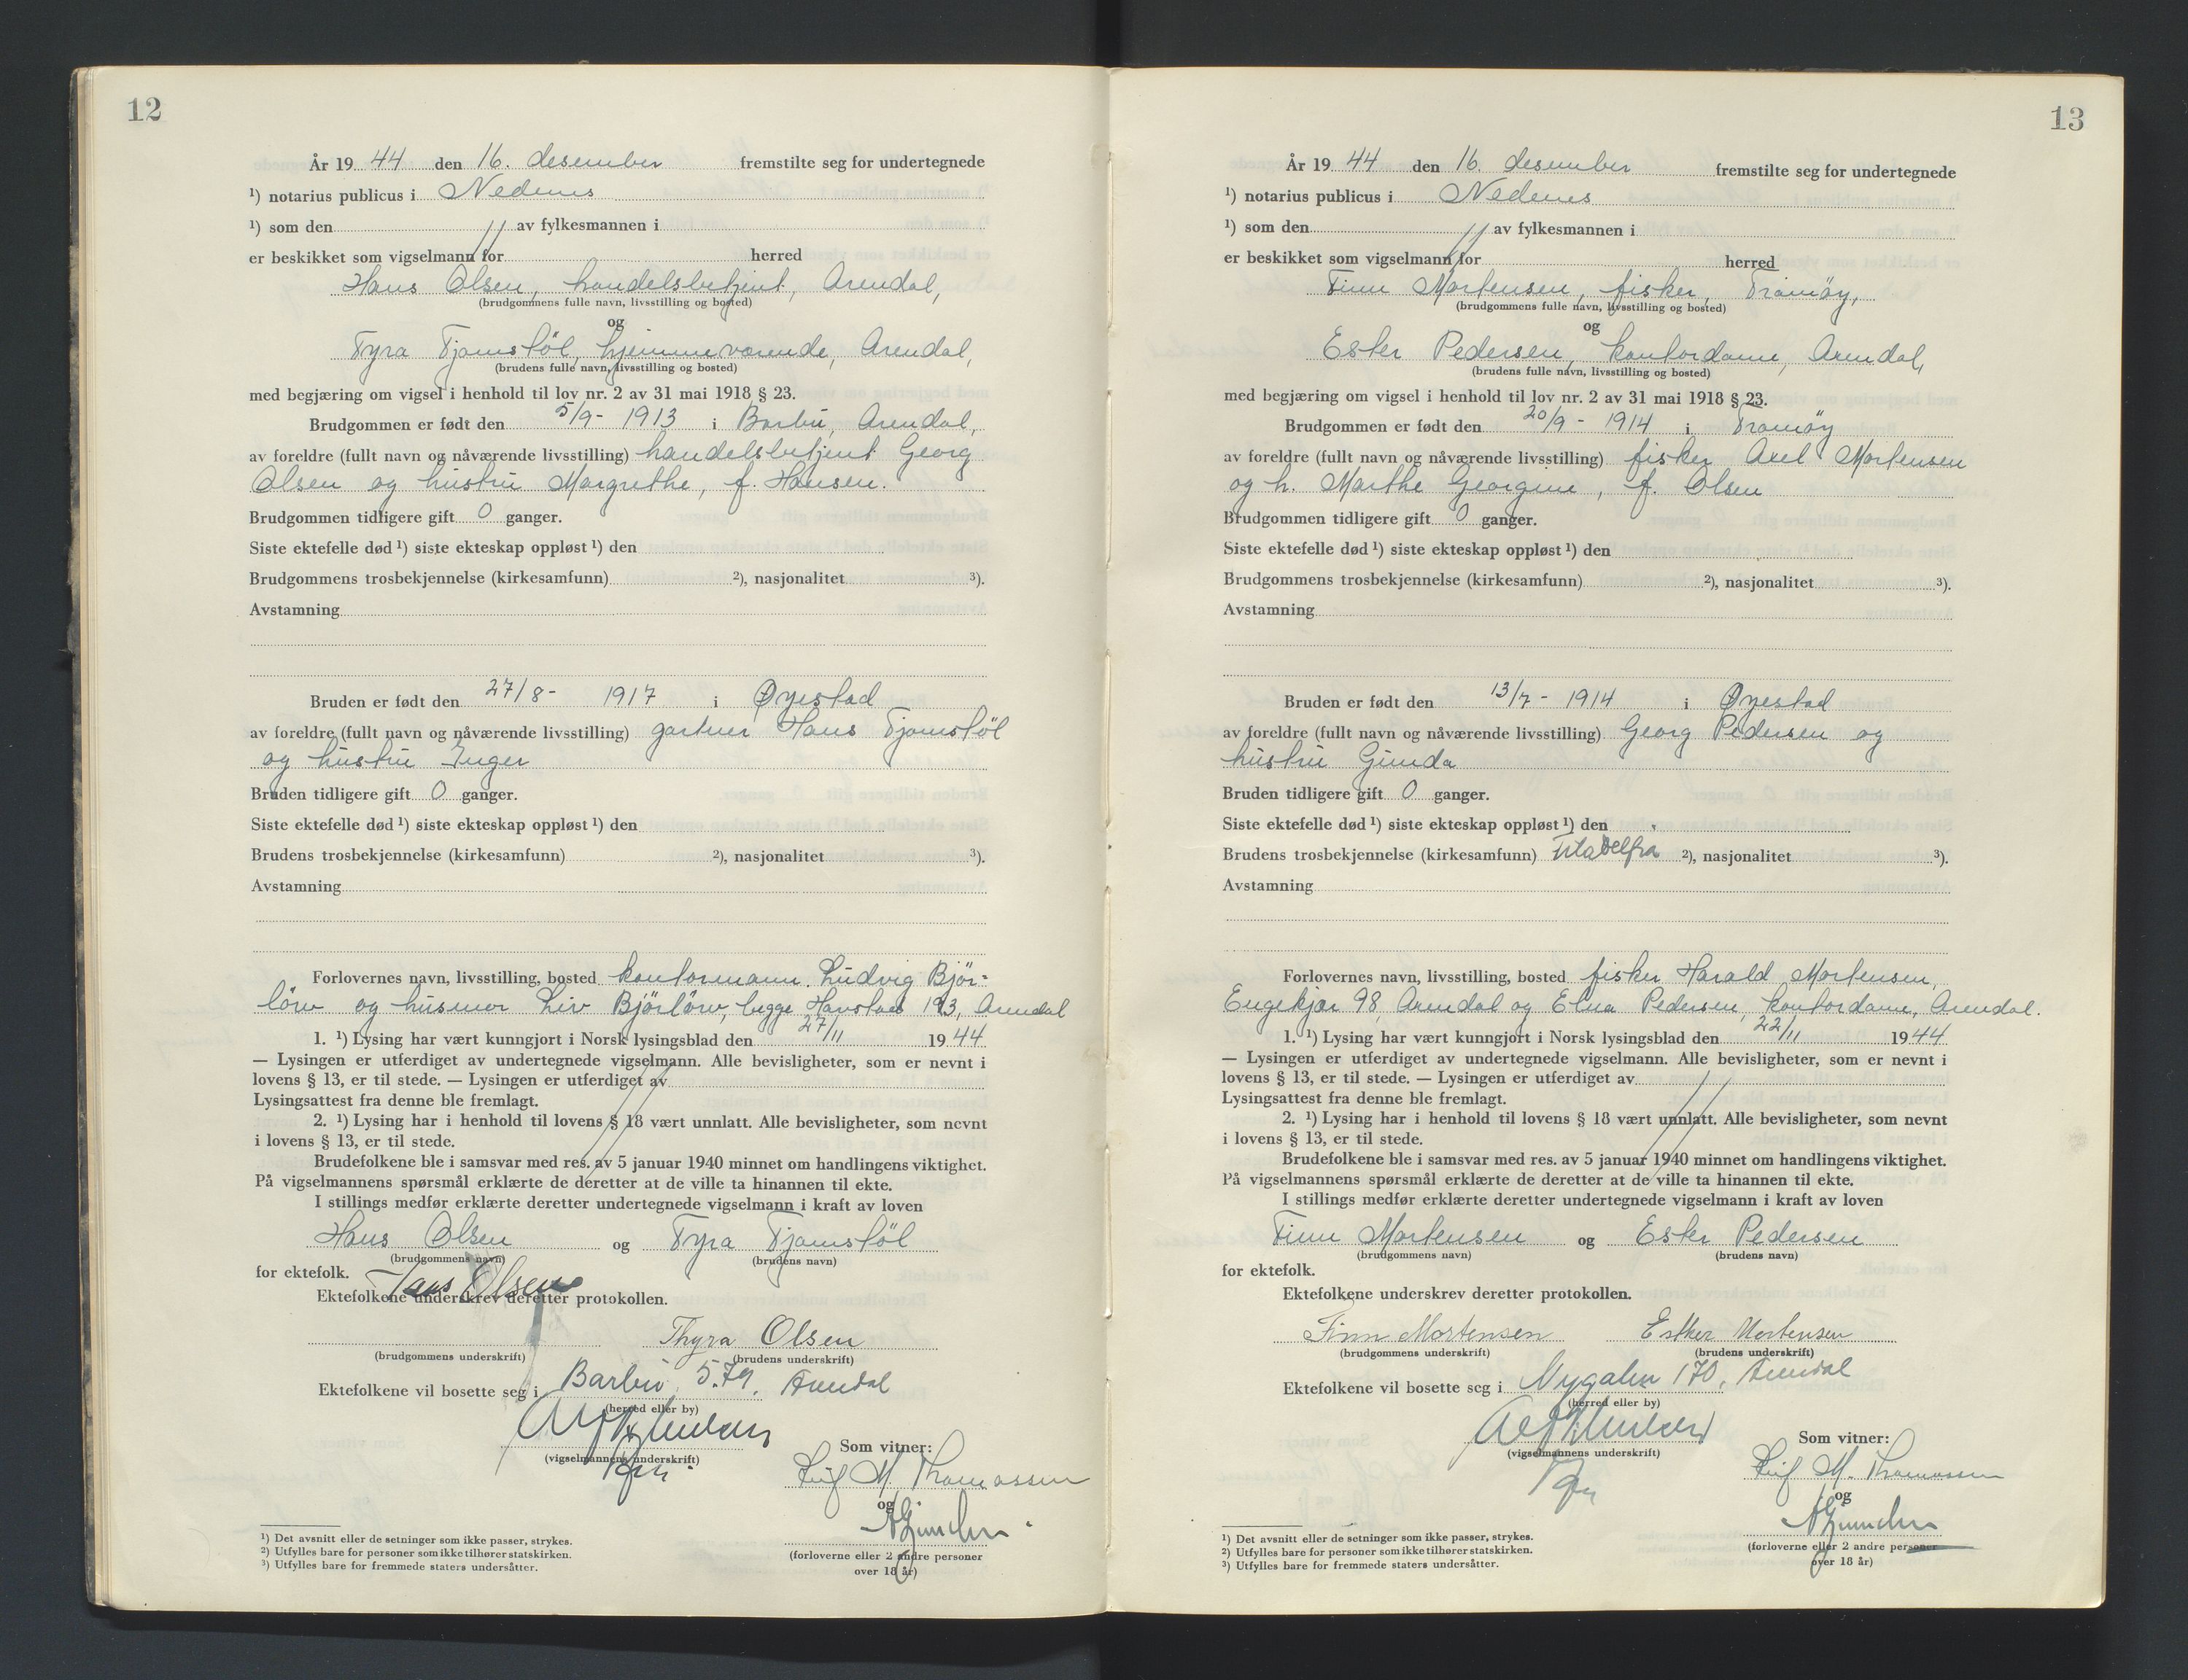 12
År 19 44 den 16. desember fremstilte seg for undertegnede
¹) notarius publicus i Nedenes
¹) som den av fylkesmannen i
er beskikket som vigselmann for herred
Hans Olsen, handelsbetjent, Arendal,
(brudgommens fulle navn, livsstilling og bosted)
og
Tyra Tjamsföl, hjemmeværende, Arendal,
(brudens fulle navn, livsstilling og bosted)
med begjæring om vigsel i henhold til lov nr. 2 av 31 mai 1918 § 23.
Brudgommen er født den 5/9- 1913 i Barbu, Arendal,
av foreldre (fullt navn og nåværende livsstilling) handelsbetjent Georg
Olsen og hustru Margrethe, f. Hansen.
Brudgommen tidligere gift 0 ganger.
Siste ektefelle død ¹) siste ekteskap oppløst ¹) den
Brudgommens trosbekjennelse (kirkesamfunn) ²), nasjonalitet ³).
Avstamning
Bruden er født den 27/8- 1917 i Øyestad
av foreldre (fullt navn og nåværende livsstilling) gartner Hans Tjamsföl
og hustru Inger
Bruden tidligere gift 0 ganger.
Siste ektefelle død ¹) siste ekteskap oppløst ¹) den
Brudens trosbekjennelse (kirkesamfunn) ²), nasjonalitet ³).
Avstamning
Forlovernes navn, livsstilling, bosted kontormann Ludvig Björ-
löw og husmor Liv Björlöw, begge Havstad 193, Arendal
1. ¹) Lysing har vært kunngjort i Norsk lysingsblad den 27/11 19 44
— Lysingen er utferdiget av undertegnede vigselmann. Alle bevisligheter, som er nevnt i
lovens § 13, er til stede. — Lysingen er utferdiget av
Lysingsattest fra denne ble fremlagt.
2. ¹) Lysing har i henhold til lovens § 18 vært unnlatt. Alle bevisligheter, som nevnt
i lovens § 13, er til stede.
Brudefolkene ble i samsvar med res. av 5 januar 1940 minnet om handlingens viktighet.
På vigselmannens spørsmål erklærte de deretter at de ville ta hinannen til ekte.
I stillings medfør erklærte deretter undertegnede vigselmann i kraft av loven
Hans Olsen og Tyra Tjamsföl
(brudgommens navn) (brudens navn)
for ektefolk.
Hans Olsen
Ektefolkene underskrev deretter protokollen.
Thyra Olsen
(brudgommens underskrift) (brudens underskrift)
Ektefolkene vil bosette seg i Barbu 579, Arendal
(herred eller by)
(vigselmannens underskrift)
Som vitner:
Leif M. Thomassen
og
(forloverne eller 2 andre personer
over 18 år)
¹) Det avsnitt eller de setninger som ikke passer, strykes.
²) Utfylles bare for personer som ikke tilhører statskirken.
³) Utfylles bare for fremmede staters undersåtter.
13
År 19 44 den 16. desember fremstilte seg for undertegnede
¹) notarius publicus i Nedenes
¹) som den av fylkesmannen i
er beskikket som vigselmann for herred
Finn Mortensen, fisker, Tromøy,
(brudgommens fulle navn, livsstilling og bosted)
og
Ester Pedersen, kontordame, Arendal,
(brudens fulle navn, livsstilling og bosted)
med begjæring om vigsel i henhold til lov nr. 2 av 31 mai 1918 § 23.
Brudgommen er født den 20/9 - 1914 i Tromöy
av foreldre (fullt navn og nåværende livsstilling) fisker Axel Mortensen
og h. Marthe Georgine, f. Olsen
Brudgommen tidligere gift 0 ganger.
Siste ektefelle død ¹) siste ekteskap oppløst ¹) den
Brudgommens trosbekjennelse (kirkesamfunn) ²), nasjonalitet ³).
Avstamning
Bruden er født den 13/7 - 1914 i Øyestad
av foreldre (fullt navn og nåværende livsstilling) Georg Pedersen og
hustru Gunda
Bruden tidligere gift 0 ganger.
Siste ektefelle død ¹) siste ekteskap oppløst ¹) den
Brudens trosbekjennelse (kirkesamfunn) Filadelfia ²), nasjonalitet ³).
Avstamning
Forlovernes navn, livsstilling, bosted fisker Harald Mortensen,
Engekjær 98, Arendal og Elna Pedersen, kontordame, Arendal.
1. ¹) Lysing har vært kunngjort i Norsk lysingsblad den 22/11 19 44
— Lysingen er utferdiget av undertegnede vigselmann. Alle bevisligheter, som er nevnt i
lovens § 13, er til stede. — Lysingen er utferdiget av
Lysingsattest fra denne ble fremlagt.
2. ¹) Lysing har i henhold til lovens § 18 vært unnlatt. Alle bevisligheter, som nevnt
i lovens § 13, er til stede.
Brudefolkene ble i samsvar med res. av 5 januar 1940 minnet om handlingens viktighet.
På vigselmannens spørsmål erklærte de deretter at de ville ta hinannen til ekte.
I stillings medfør erklærte deretter undertegnede vigselmann i kraft av loven
Finn Mortensen og Ester Pedersen
(brudgommens navn) (brudens navn)
for ektefolk.
Ektefolkene underskrev deretter protokollen.
Finn Mortensen Esther Mortensen
(brudgommens underskrift) (brudens underskrift)
Ektefolkene vil bosette seg i Nygaten 170, Arendal
(herred eller by)
(vigselmannens underskrift)
Som vitner:
Leif M. Thomassen
og
(forloverne eller 2 andre personer
over 18 år)
¹) Det avsnitt eller de setninger som ikke passer, strykes.
²) Utfylles bare for personer som ikke tilhører statskirken.
³) Utfylles bare for fremmede staters undersåtter.